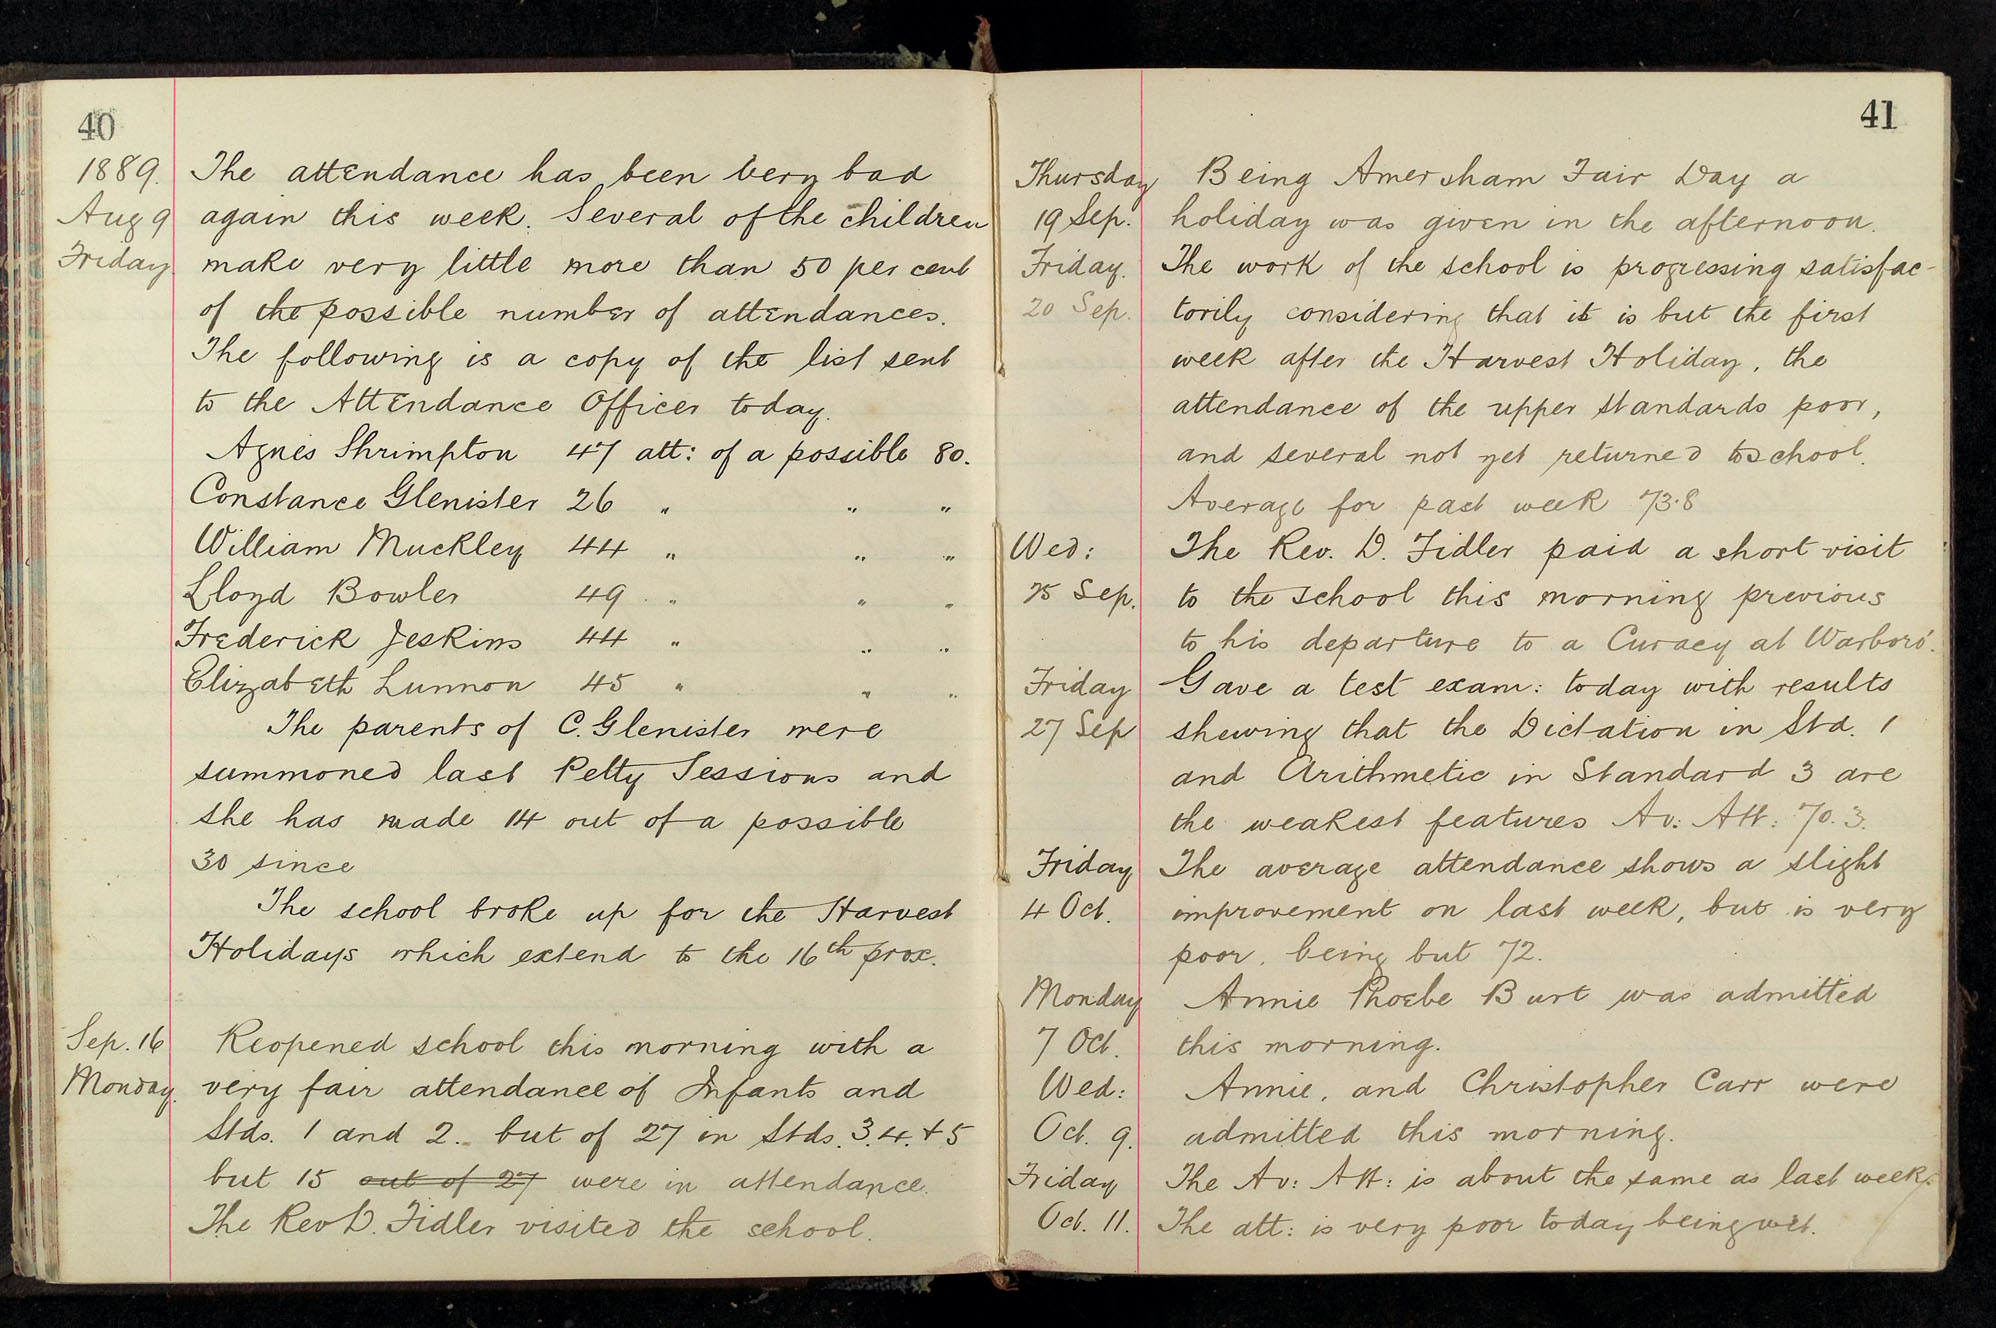 40
1889. The attendance has been very bad
Aug 9 again this week. Several of the children
Friday make very little more than 50 per cent
of the possible number of attendances.
The following is a copy of the list sent
to the Attendance Officer today.
Agnes Shrimpton 47 att: of a possible 80.
Constance Glenister 26 " " "
William Muckley 44 " " "
Lloyd Bowler 49 " " "
Frederick Jeskins 44 " " "
Elizabeth Lunnon 45 " " "
The parents of C. Glenister were
summoned last Petty Sessions and
she has made 14 out of a possible
30 since
The school broke up for the Harvest
Holidays which extend to the 16th prox.
Sep. 16 Reopened school this morning with a
Monday. very fair attendance of Infants and
Stds. 1 and 2. but of 27 in Stds. 3. 4. + 5
but 15 out of 27 were in attendance.
The Rev D. Fidler visited the school.
41
Thursday Being Amersham Fair Day a
19 Sep. holiday was given in the afternoon.
Friday. The work of the school is progressing satisfac-
20 Sep. torily considering that it is but the first
week after the Harvest Holiday, the
attendance of the upper standards poor,
and several not yet returned to school.
Average for past week 73.8
Wed: The Rev. D. Fidler paid a short visit
25 Sep. to the school this morning previous
to his departure to a Curacy at Warboro'.
Friday Gave a test exam: today with results
27 Sep shewing that the Dictation in Std. 1
and Arithmetic in Standard 3 are
the weakest features Av: Att: 70.3.
Friday The average attendance shows a slight
4 Oct. improvement on last week, but is very
poor, being but 72.
Monday Annie Phoebe Burt was admitted
7 Oct. this morning.
Wed: Annie, and Christopher Carr were
Oct. 9. admitted this morning.
Friday The Av: Att: is about the same as last week
Oct. 11. The att: is very poor today being wet.